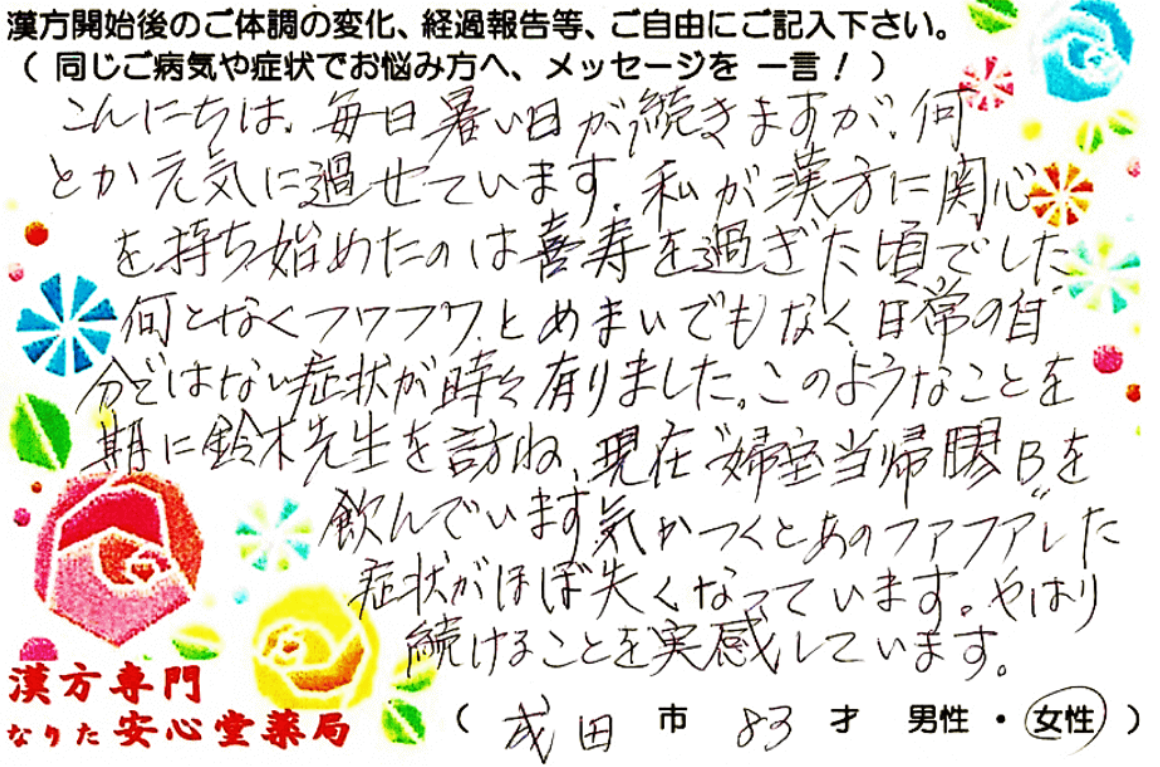 漢方開始後のご体調の変化、経過報告等、ご自由にご記入下さい。
（ 同じご病気や症状でお悩み方へ、メッセージを 一言！ ）
こんにちは、毎日暑い日が続きますが、何
とか元気に過せています。私が漢方に関心
を持ち始めたのは喜寿を過ぎた頃でした。
何となくフワフワとめまいでもなく、日常の自
分ではない症状が時々有りました。このようなことを
期に鈴木先生を訪ね、現在婦宝当帰膠Bを
飲んでいます気がつくとあのファファした
症状がほぼ失くなっています。やはり
続けることを実感しています。
漢方専門
なりた 安心堂薬局
（ 成田 市 83 才 男性 ・ 女性 ）